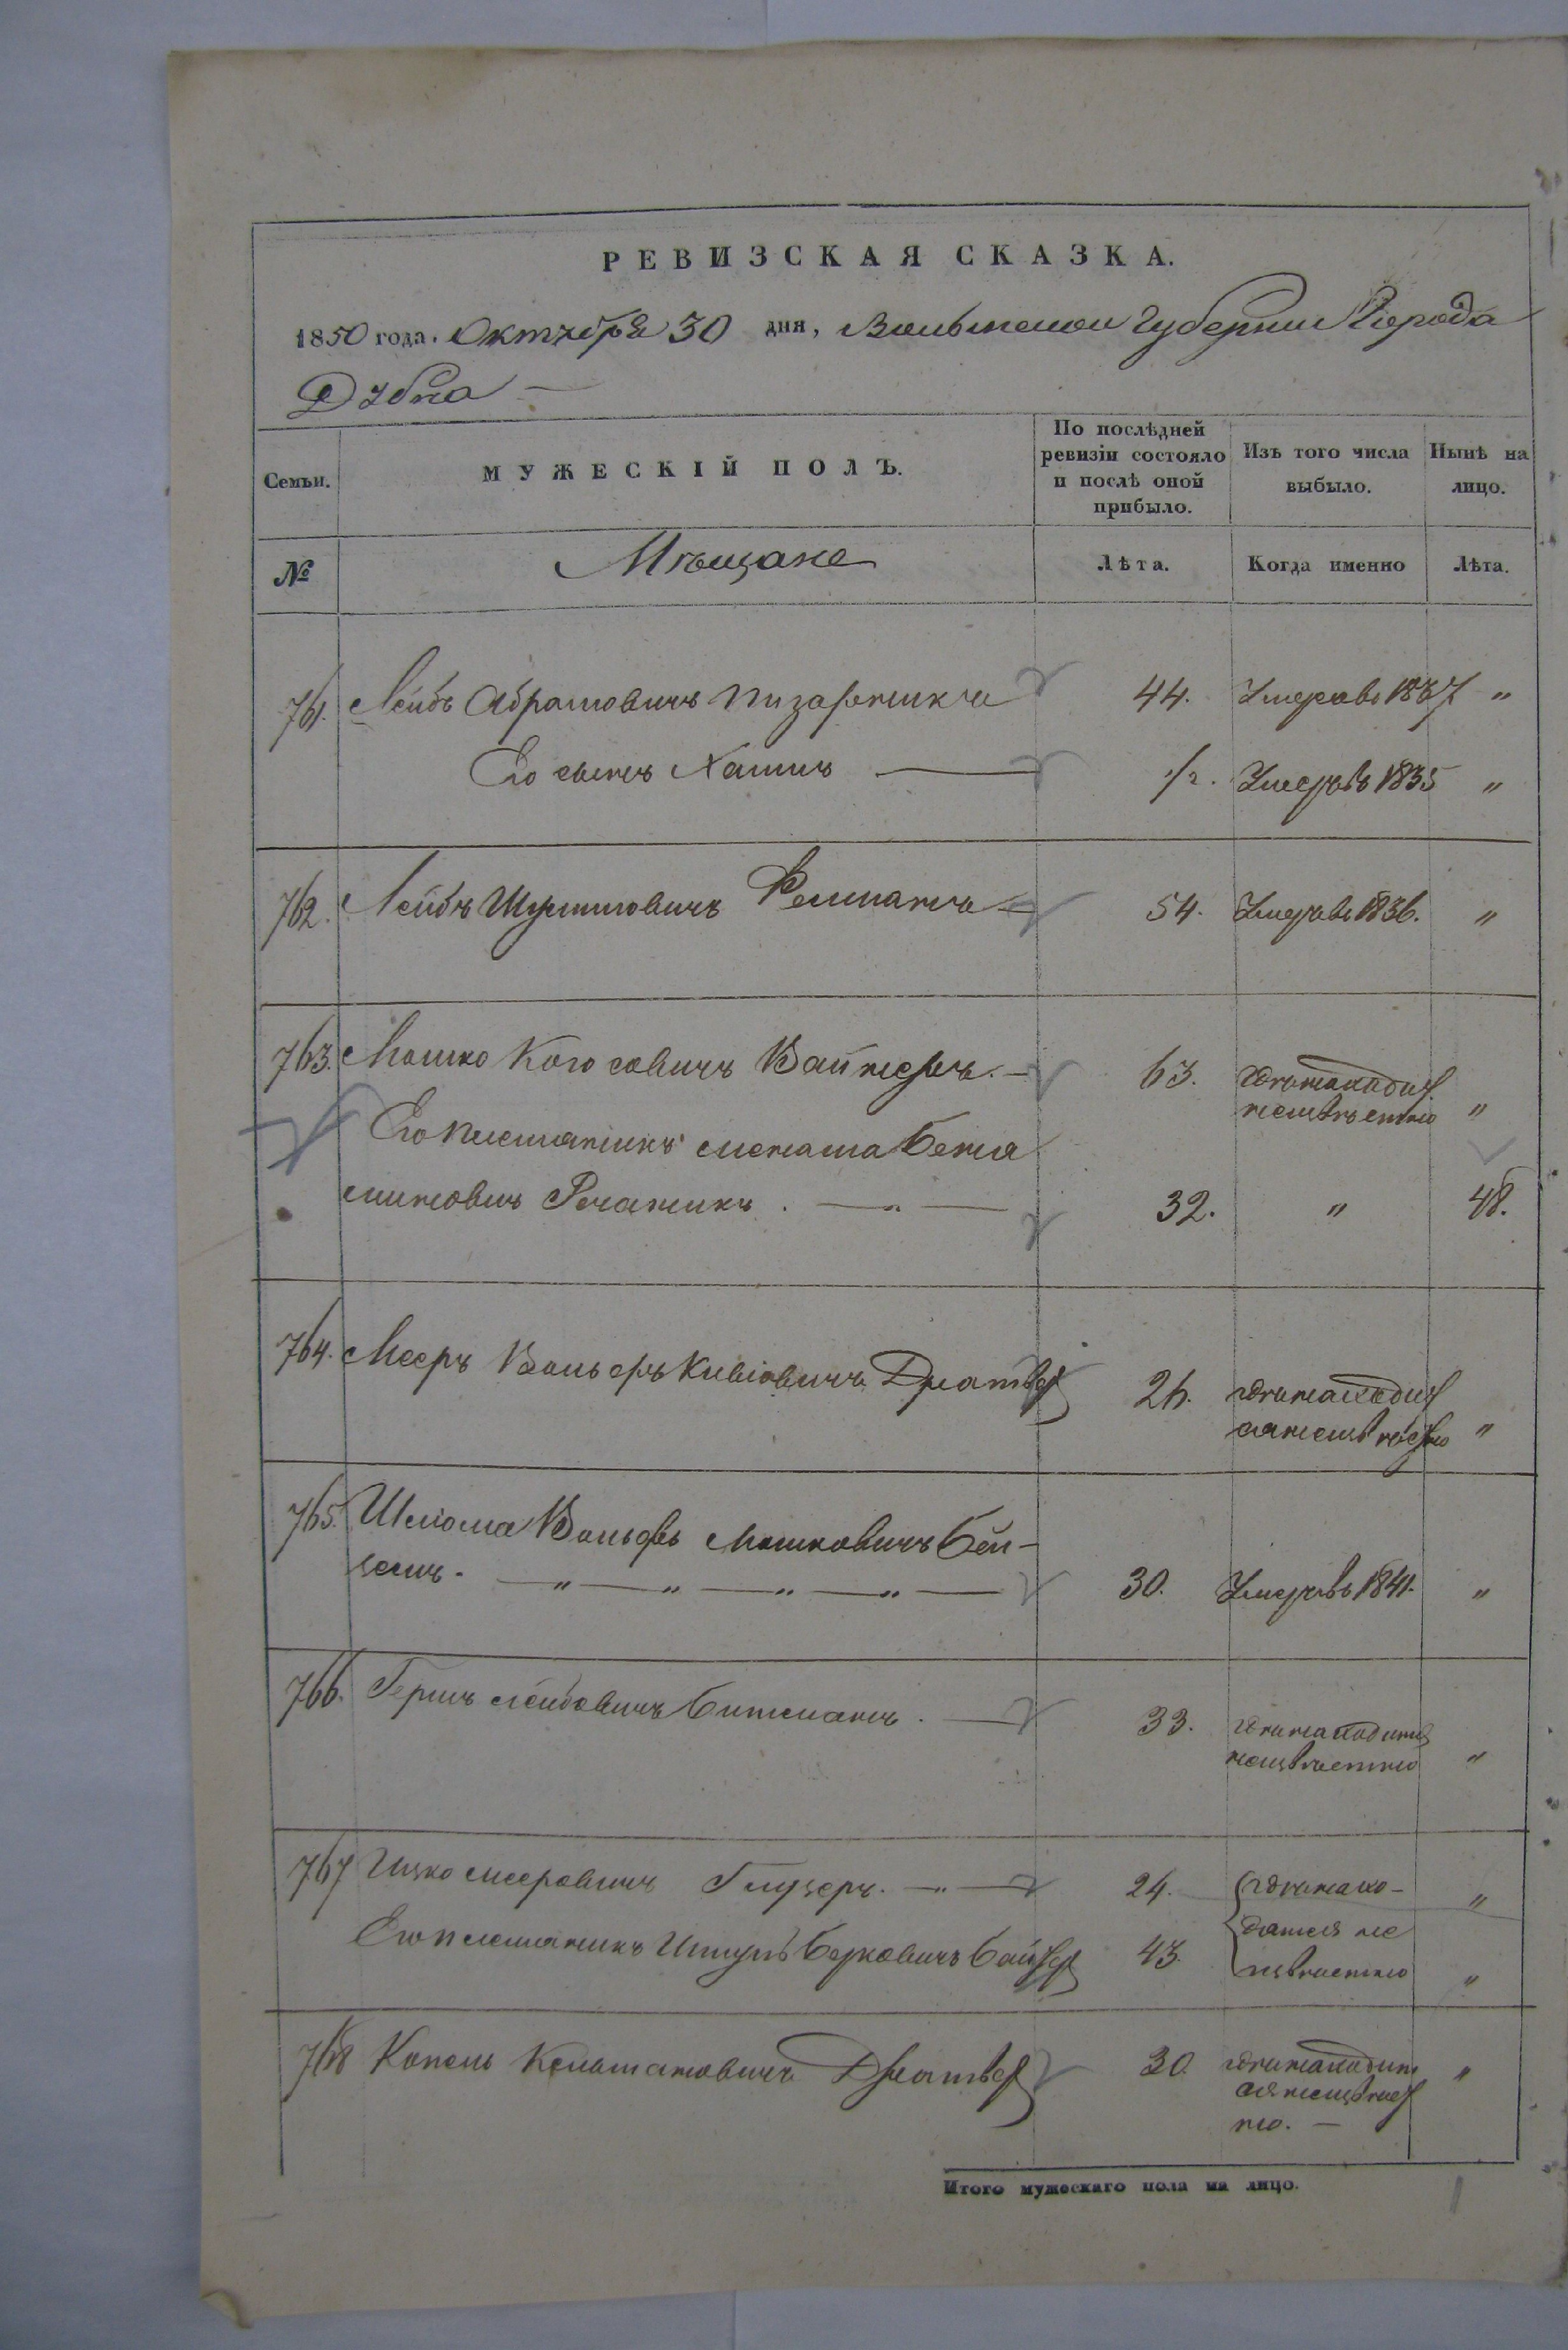 РЕВИЗСКАЯ СКАЗКА.
1850 года. Октября 30 дня, Волынской Губернии Города
Дубна —
Семьи.
МУЖЕСКІЙ ПОЛЪ.
По послѣдней ревизіи состояло и послѣ оной прибыло.
Изъ того числа выбыло.
Нынѣ на лицо.
№
Мѣщане
Лѣта.
Когда именно
Лѣта.
761. Лейбъ Абрамовичъ 44. Умеръ въ 1837 "
Его сынъ Хаимъ — 1/2. Умеръ въ 1835 "
762. Лейбъ Шулимовичъ 54. Умеръ въ 1836. "
763. Мошко Вайнеръ. — 63. где находит.
неизвѣстно "
Его племянникъ Бенья
миновичъ 32. " 48.
764. Мееръ Вольфъ Кивіовичъ Дратвер 26. где находит
ся неизвѣстно "
765. Шліома Вольфъ Мошковичъ Бен-
земъ. — " — " — " — " — 30. Умеръ въ 1841. "
766. Гершъ Лейбовичъ Битманъ. — 33. где находит
неизвѣстно "
767 Ицко Мееровичъ Глузеръ. — " — 24. где нахо-
дится не "
Его племянникъ Беркович 43. извѣстно "
768 Копель Дратвер 30. где находит
ся неизвѣст "
но. —
Итого мужескаго пола на лицо. 1